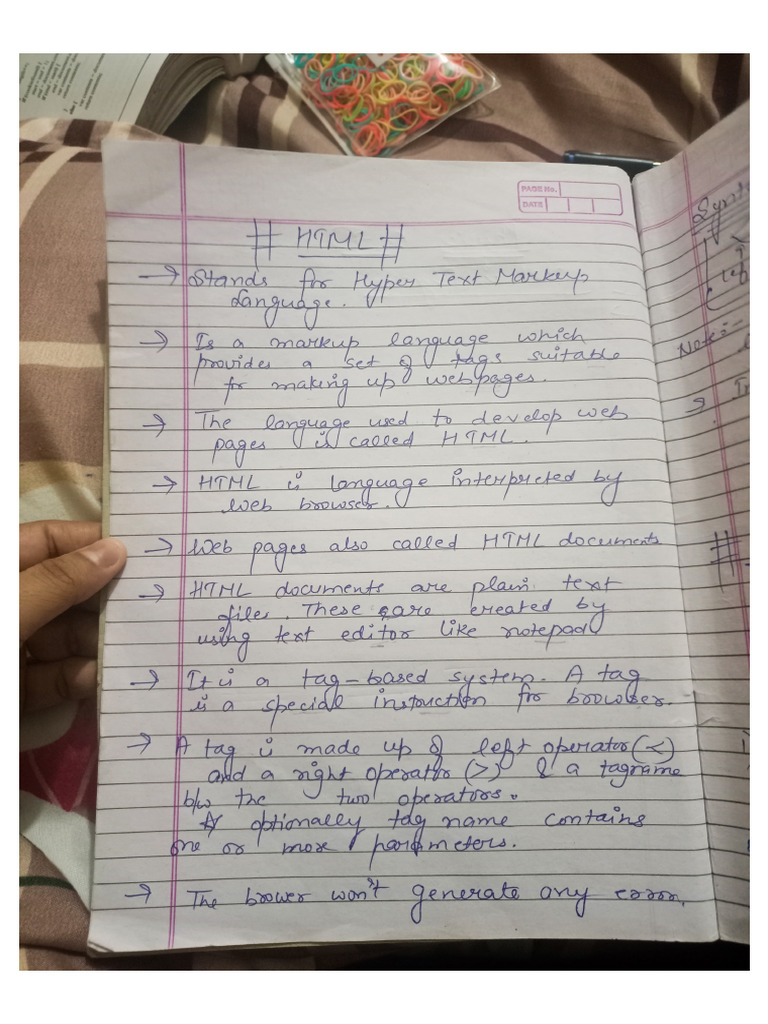 PAGE No.
DATE
# HTML #
→ Stands for Hyper Text Markup
Language.
→ Is a markup language which
provides a set of tags suitable
for making up webpages.
→ The language used to develop web
pages is called HTML.
→ HTML is language interpreted by
Web browser.
→ Web pages also called HTML documents
→ HTML documents are plain text
files. These are created by
using text editor like notepad
→ It is a tag-based system. A tag
is a special instruction for browser.
→ A tag is made up of left operator(<)
and a right operator (>) & a tagname
b/w the two operators.
optionally tag name contains
one or more parameters.
→ The brower won't generate any error.
Note:-
#